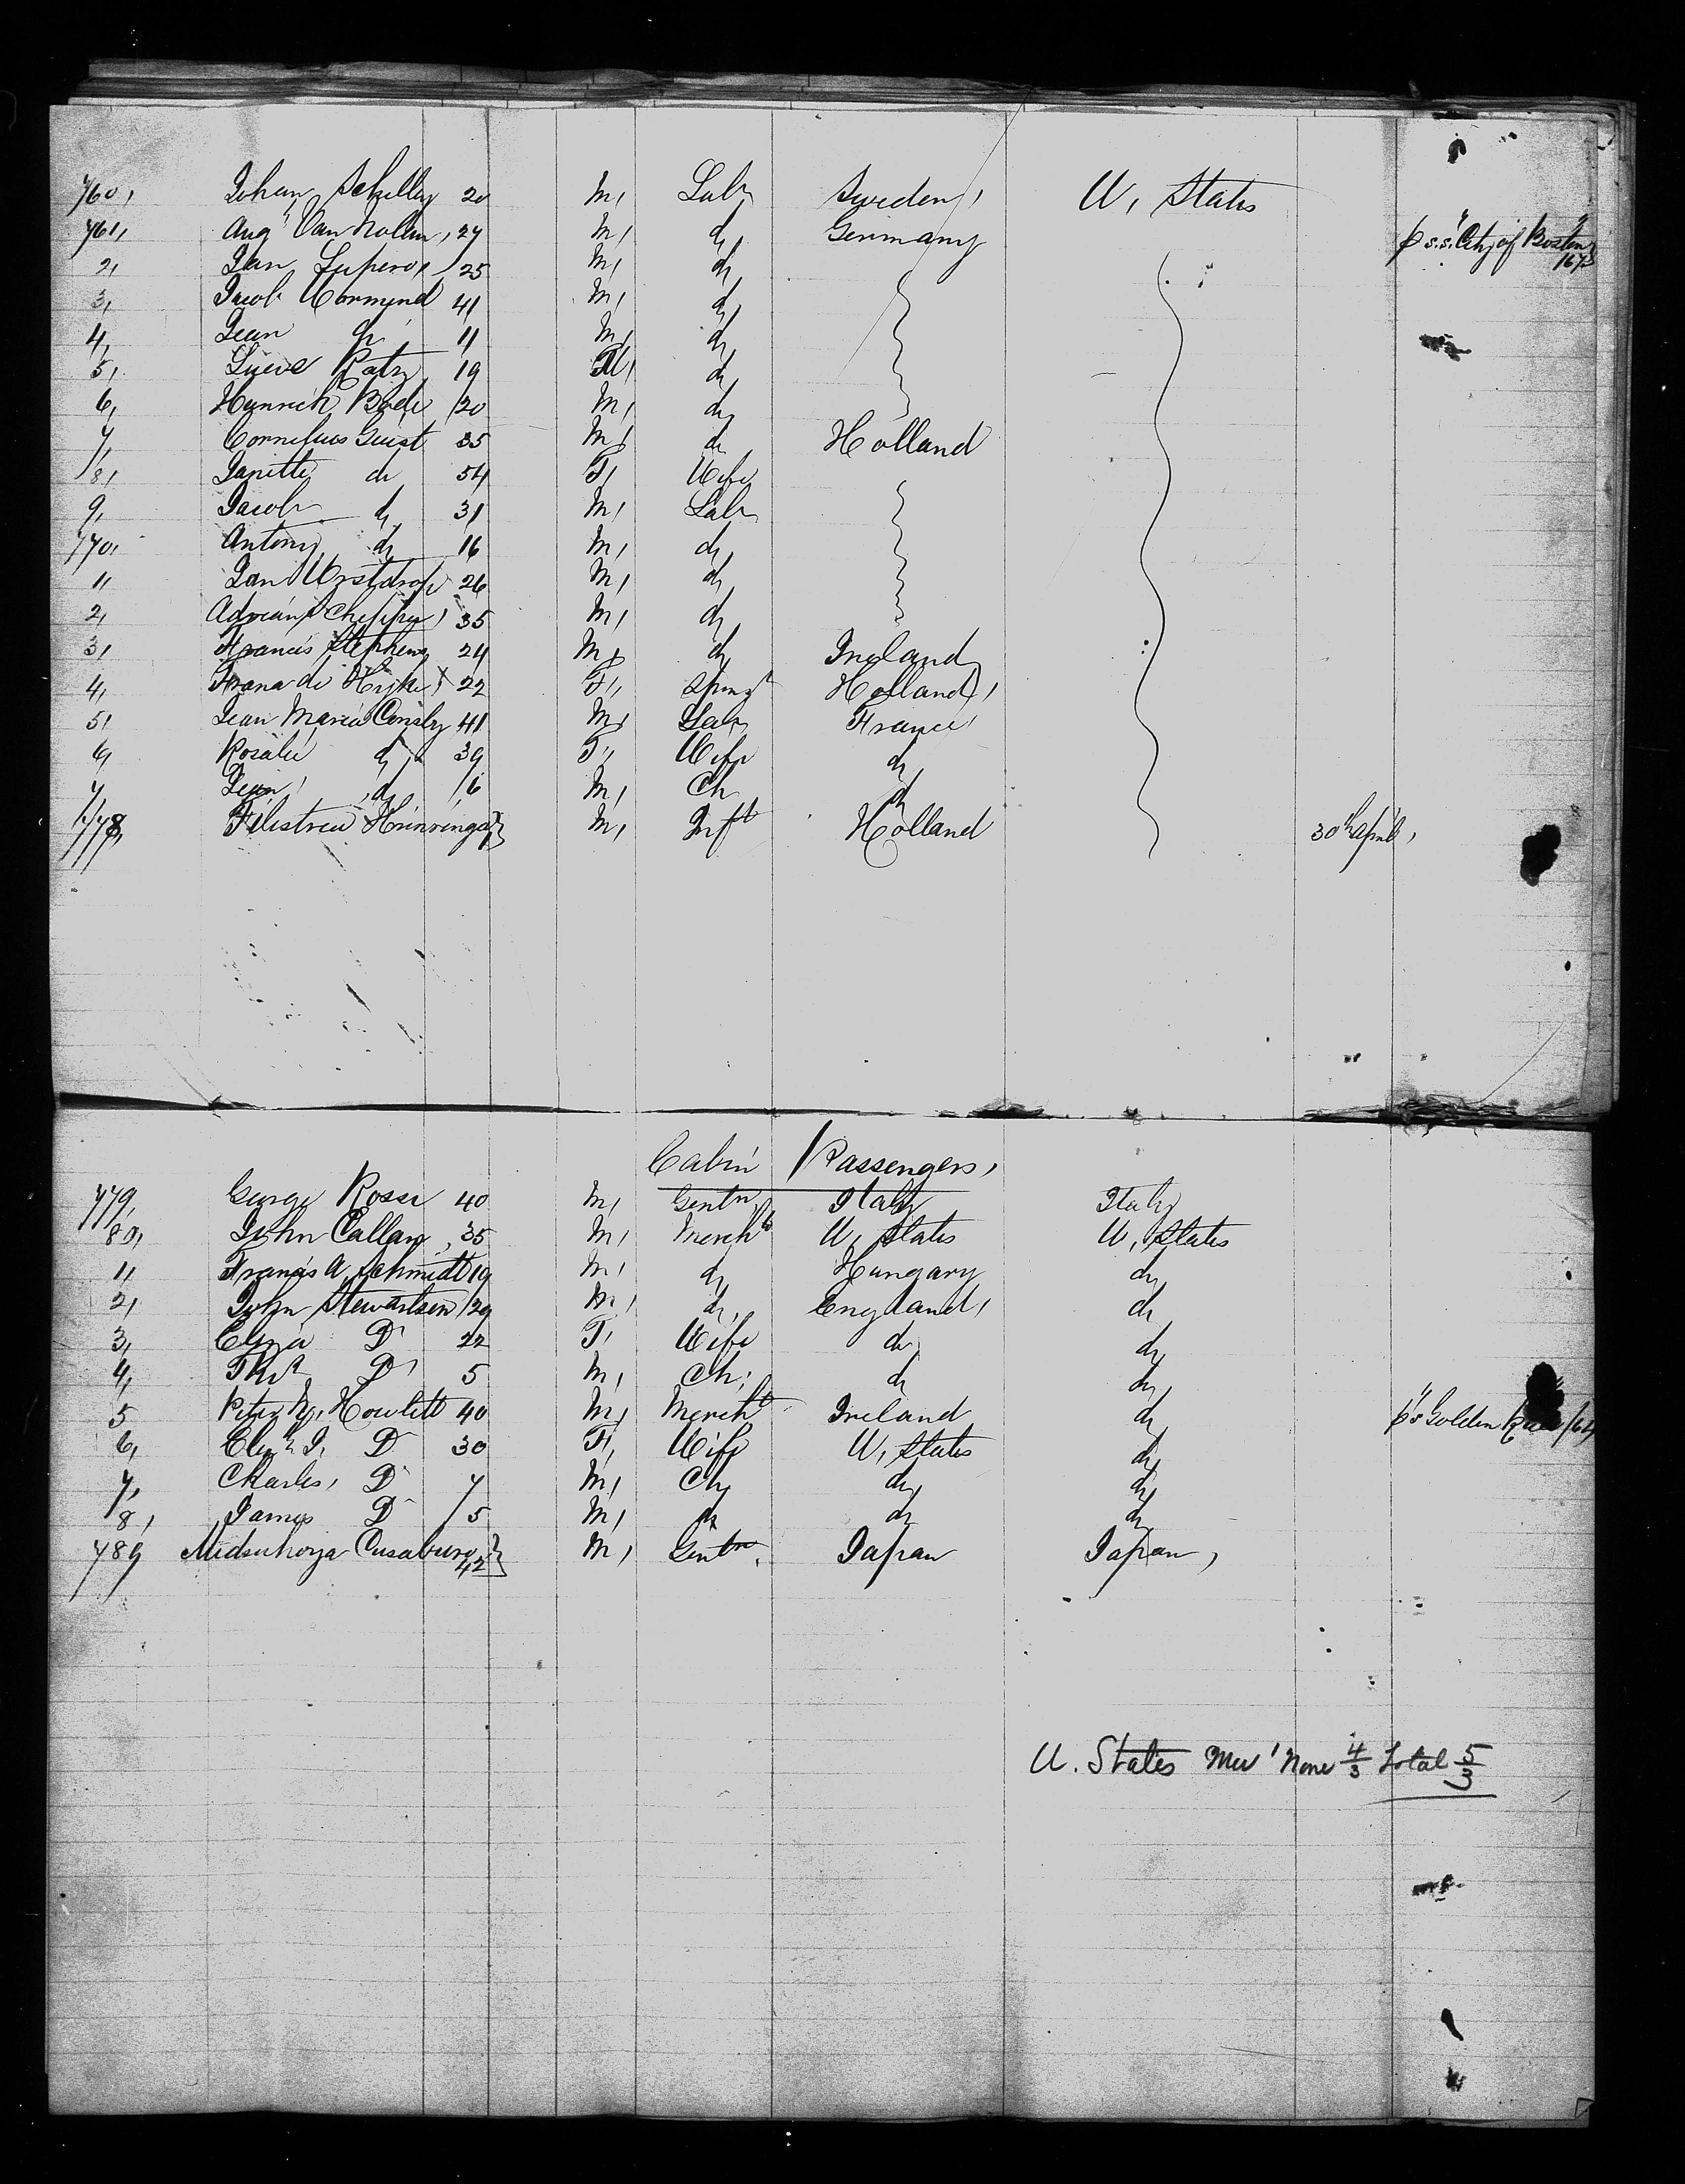 760, Johan Schilly 20 M, Labr Sweden, U, States
761, Augt Van Nolen, 27 M, do Germany p s.s. "City of Boston" 1673
2, Jan 25 M, do
3, Jacob 41 M, do
4, Jean do 11 M, do
5, Katz 19 M, do
6, Heinrich Bode 20 M, do
7, Cornelius Geist 35 M, do Holland
8, Janette do 54 F, Wife
9, Jacob do 31 M, Labr
770, Antony do 16 M, do
1, Jan 26 M, do
2, Adrian 35 M, do
3, Francis Stephens 24 M, do Ireland
4, Frana de 22 F, Spinst Holland,
5, Jean Maria 41 M, Labr France
6, Rosalie do 39 F, Wife do
7, Jean, do 6 M, Ch do
778, M, Inft Holland 30th April,
Cabin Passengers,
779, George Rosse 40 M, Gentn Italy Italy
80, John Callan, 35 M, Mercht U, States U, States
1, Francis A. Schmidt 19 M, do Hungary do
2, John Stewartsen 29 M, do, England, do
3, Eliza Do 22 F, Wife do do
4, Do 5 M, Ch; do do
5 Peter M, Howlett 40 M, Mercht Ireland do p "Golden /64
6, Elizth J, Do 30 F, Wife U, States do
7, Charles, Do 7 M, Ch do do
8, James Do 5 M, do do do
789 Midsuhoya Cusaburo 42 M, Gentn. Japan Japan,
U. States None 4/3 Total 5/3